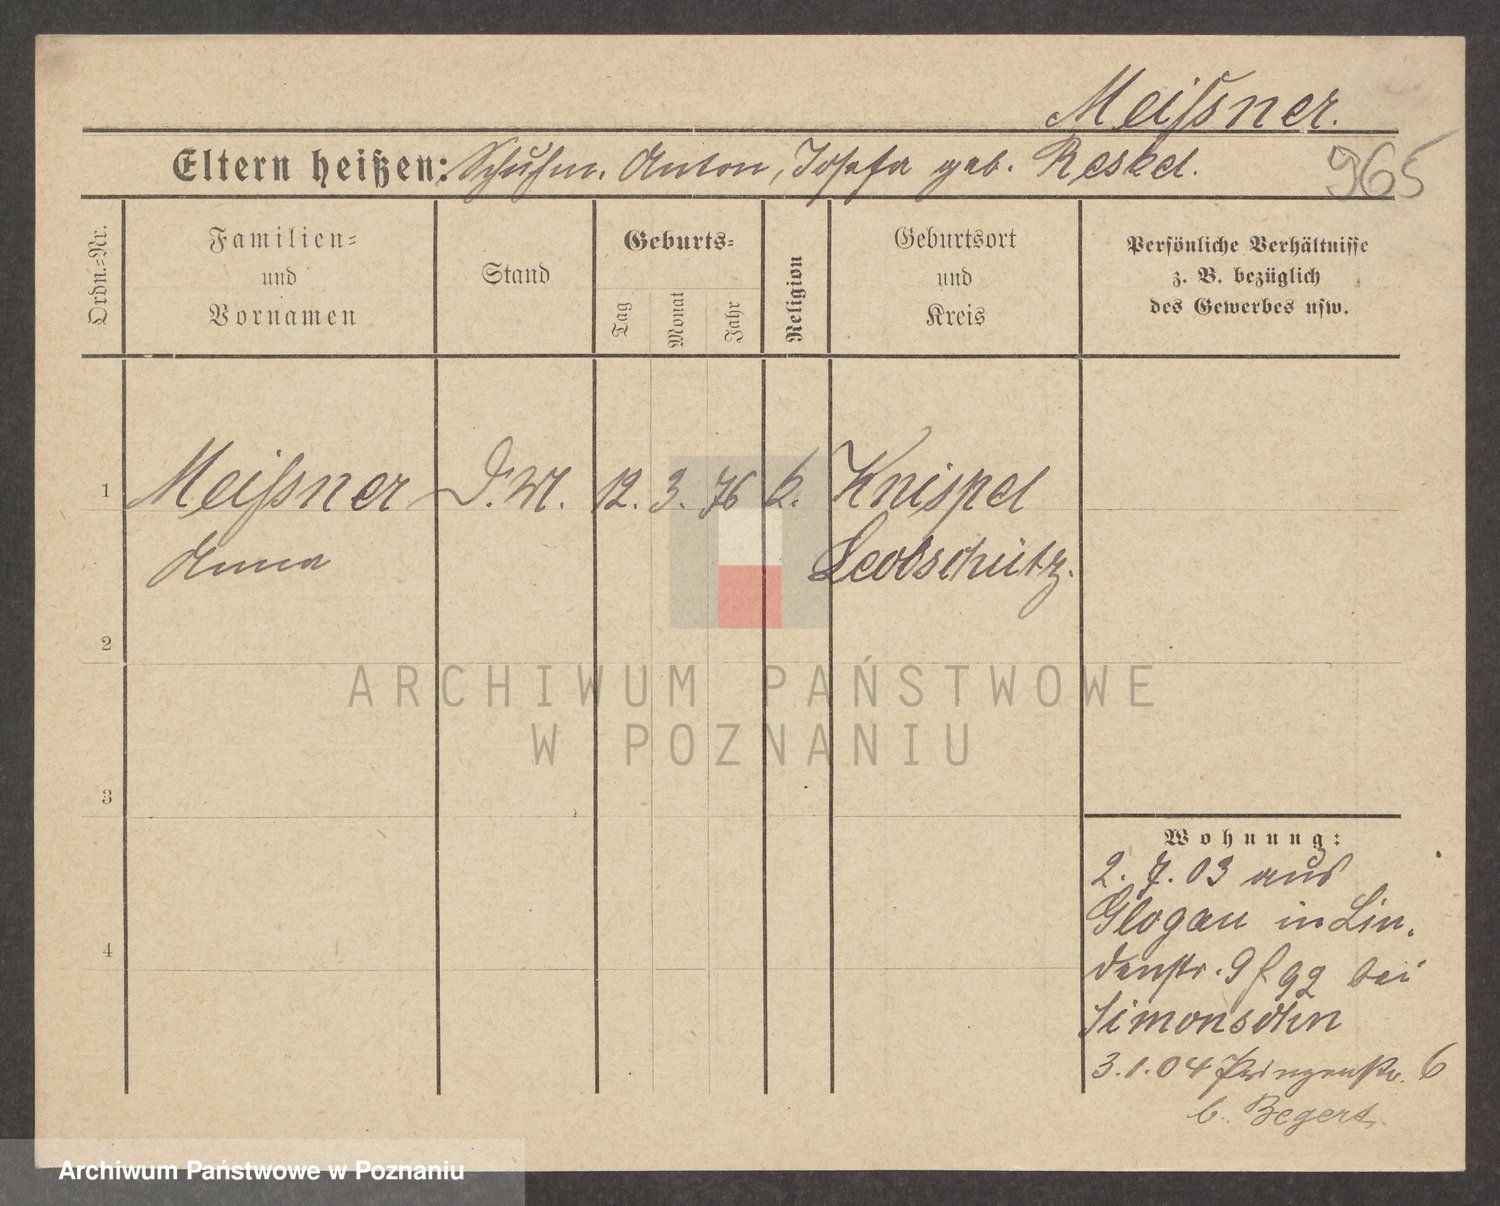 Meißner.
Eltern heißen: Schuhm. Anton, Josefa geb. Reskel.
965
Ordn.-Nr.
Familien-
und
Vornamen
Stand
Geburts-
Tag
Monat
Jahr
Religion
Geburtsort
und
Kreis
Persönliche Verhältnisse
z. B. bezüglich
des Gewerbes usw.
1 Meißner D.M. 12. 3. 76 k. Knispel
Anna Leobschütz.
2
3
4
Wohnung:
2. 7. 03 aus
Glogau in Lin-
denstr. 9 bei
Simonsohn
3.1.04 Prinzenstr. 6
b. Begert
ARCHIWUM PAŃSTWOWE
W POZNANIU
Archiwum Państwowe w Poznaniu